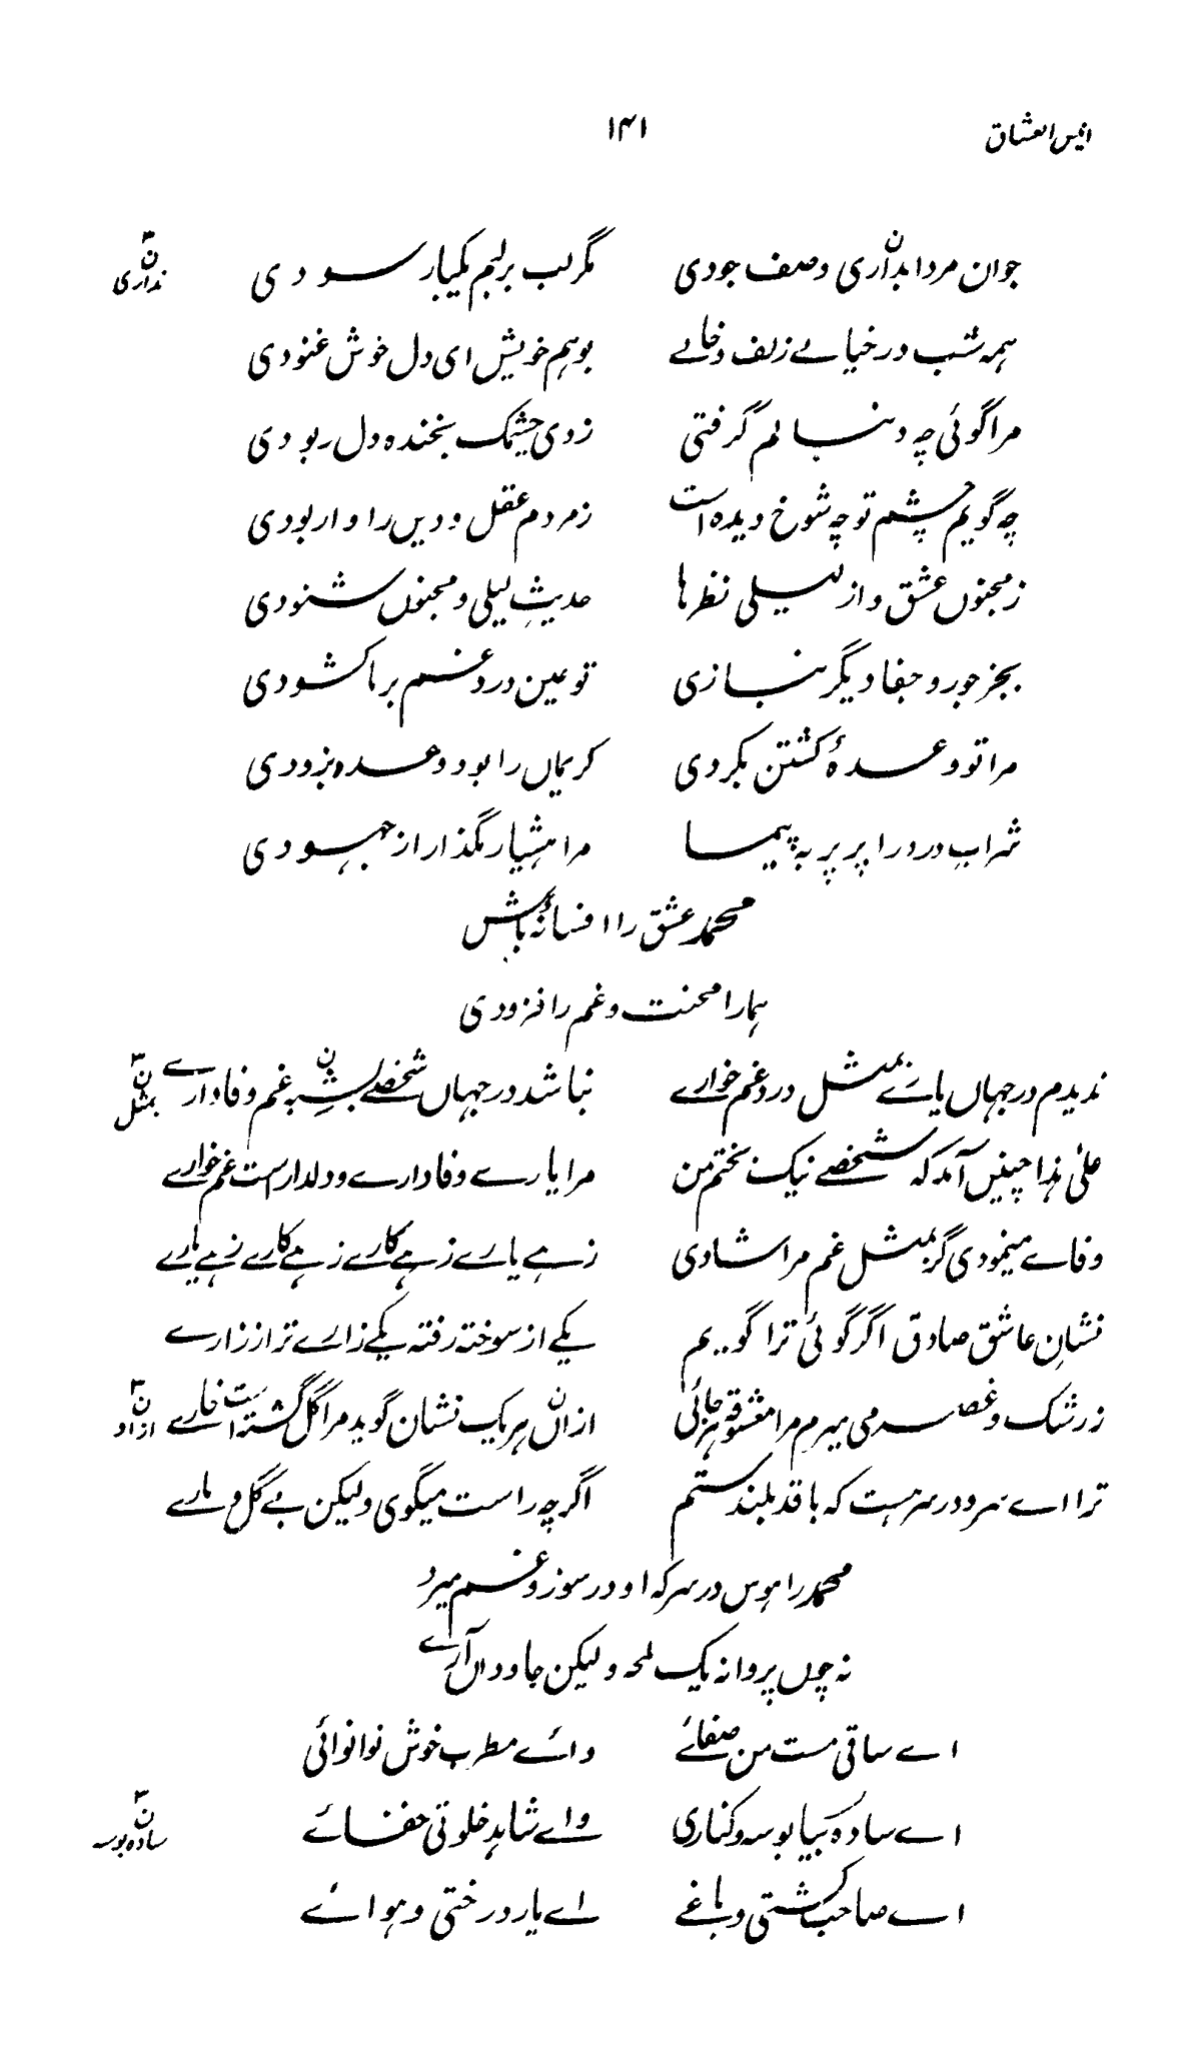 انیس العشاق ۱۴۱
جوان مردا بداری وصف جودی مگر لب بر لبم یکبار سودی
ن ندارى
ہمہ شب در خیالے زلف و خالے بوہم خویش ای دل خوش غنودی
مرا گوئی چہ دنبالم گرفتی زدی چشمک بخندہ دل ربودی
چہ گویم چشم تو چہ شوخ دیدہ است زمردم عقل و دیں را وا ربودی
زمجنوں عشق و از لیلی نظرہا حدیثِ لیلی و مجنوں شنودی
بجز جور و جفا دیگر نسازی تو عین درد و غم بر ما کشودی
مرا تو وعدۂ کشتن بکردی کریماں را بود وعدہ بزودی
شرابِ درد را پر پر بہ پیما مرا ہشیار مگذار از جہودی
محمد عشق را افسانۂ باش
ہمارا محنت و غم را فزودی
ندیدم در جہاں یارے بمثل درد و غم خوارے نباشد در جہاں شخصے بشبہ غم وفادارے
ن بمثل
علیٰ ہذا چنیں آمد کہ شخصے نیک بختم من مرا یارے وفادارے و دلدارست غم خوارے
وفاے مینمودی گر بمثل غم مرا شادی زہے یارے زہے کارے زہے کارے زہے یارے
نشانِ عاشق صادق اگر گوئی ترا گویم یکے از سوختہ رفتہ یکے زارے ترا ز زارے
زرشک و غصہ می میرم مرا معشوقہ ہر جائی ازاں ہر یک نشان گوید مرا گل گشتہ است خارے
ن ازاد
ترا اے سرو در سر ہست کہ با قد بلندستم اگرچہ راست میگوی ولیکن بے گل و بارے
محمد را ہوس در سر کہ او در سوز و غم میرد
نہ چوں پروانہ یک لمحہ ولیکن جاوداں آرے
اے ساقی مست من صفائے وائے مطرب خوش نوا نوائی
اے سادہ بیا بوسہ و کناری واے شاہدِ خلوتی جفائے
ن سادہ بوسہ
اے صاحب کشتی و باغے اے یار درختی و ہوائے